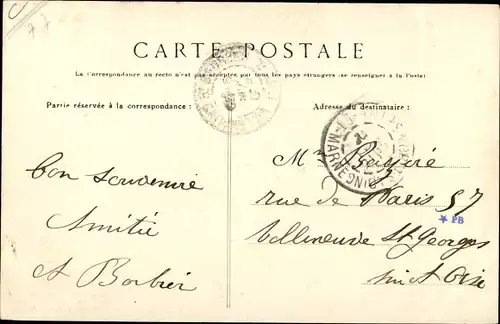 77
CARTE POSTALE
La Correspondance au recto n'est pas acceptée par tous les pays étrangers (se renseigner à la Poste)
Partie réservée à la correspondance :
Adresse du destinataire :
Bon souvenir
Amitié
A Barbier
Mr
rue de Paris 57
Villeneuve St Georges
Seine et Oise
★PB